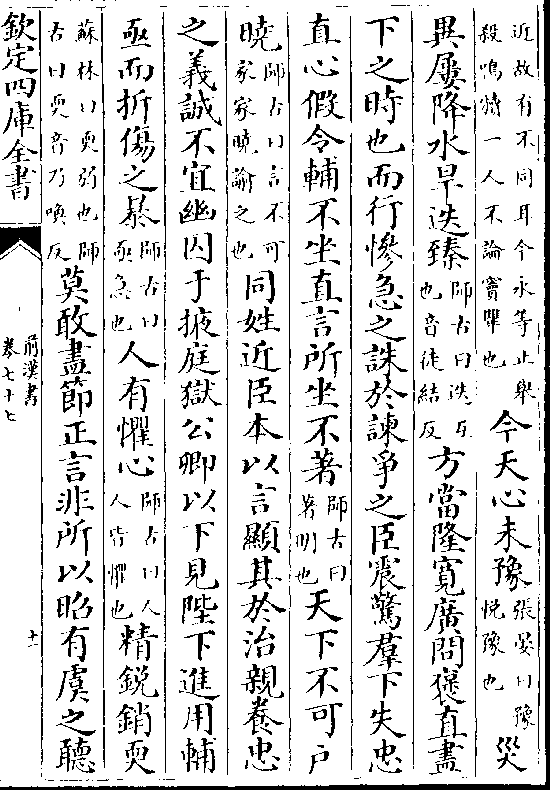 近故有不同耳今永等止舉殺鳴犢一人不論竇犫也今天心未豫張晏曰豫悅豫也災
異屢降水旱迭臻師古曰迭互也音徒結反方當隆寬廣問襃直盡
下之時也而行慘急之誅於諫爭之臣震驚羣下失忠
直心假令輔不坐直言所坐不著師古曰著明也天下不可戶
曉師古曰言不可家家曉諭之也同姓近臣本以言顯其於治親養忠
之義誠不宜幽囚于掖庭獄公卿以下見陛下進用輔
亟而折傷之暴師古曰亟急也人有懼心師古曰人人皆懼也精銳銷耎
蘇林曰耎弱也師古曰耎音乃喚反莫敢盡節正言非所以昭有虞之聽
欽定四庫全書
前漢書
卷七十七
十一